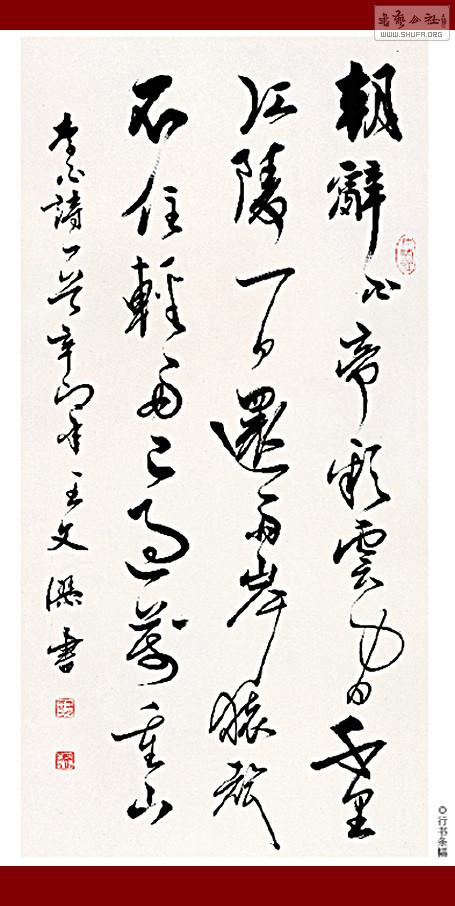 書藝公社
WWW.SHUFA.ORG
朝辭白帝彩雲間千里
江陵一日還兩岸猿聲
不住輕舟已過萬重山
李白詩一首辛卯年王文書
◎行书条幅